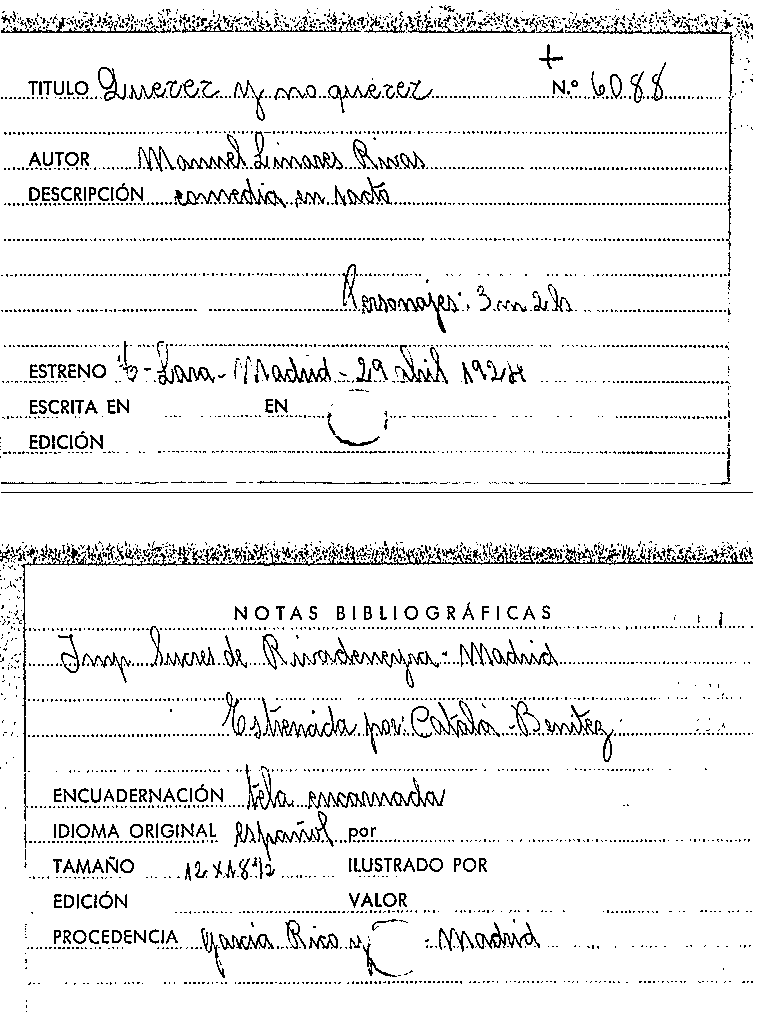 +
TITULO Querer y no querer N.º 6088
AUTOR Manuel Linares Rivas
DESCRIPCIÓN comedia en 1 acto
Personajes: 3 m 2 h
ESTRENO t- Lara - Madrid - 29 abril 1924
ESCRITA EN EN
EDICIÓN
NOTAS BIBLIOGRÁFICAS
Imp Sucres de Rivadeneyra - Madrid
Estrenada por: Catalá - Benitez
ENCUADERNACIÓN tela encarnada
IDIOMA ORIGINAL español por
TAMAÑO 12 x 18 1/2 ILUSTRADO POR
EDICIÓN VALOR
PROCEDENCIA García Rico y - Madrid